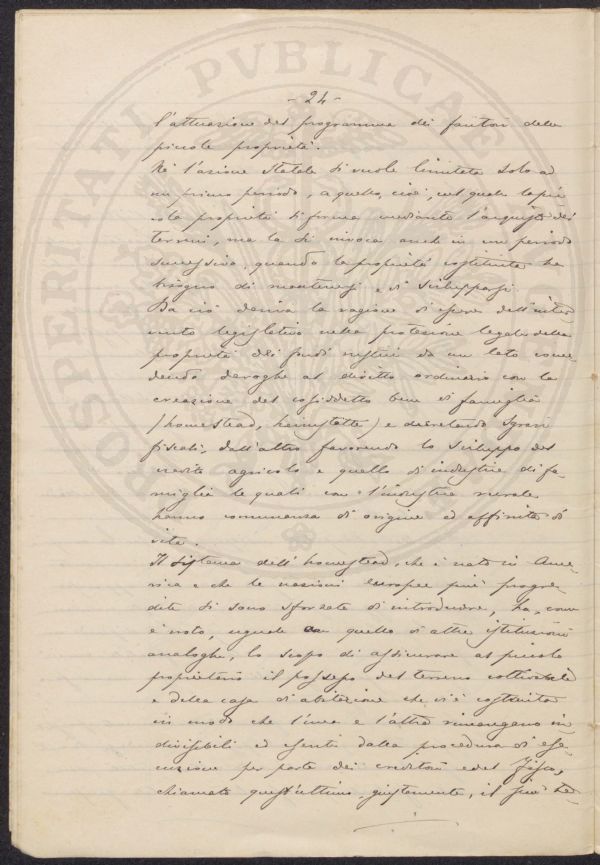 - 24 -
l'attuazione del programma dei fautori della
piccola proprietà.
Nè l'azione statale si vuole limitata solo ad
un primo periodo, a quello, cioè, nel quale la pic
cola proprietà si forma mediante l'acquisto dei
terreni, ma la si invoca anche in un periodo
successivo, quando la proprietà costituita ha
bisogno di mantenersi e di svilupparsi.
Da ciò deriva la ragione di essere dell'inter
vento legislativo nella protezione legale della
proprietà dei fondi rustici da un lato conce
dendo deroghe al diritto ordinario con la
creazione del cosiddetto bene di famiglia
(homestead, heimstätte) e decretando sgravi
fiscali, dall'altro favorendo lo sviluppo del
credito agricolo e quello di industrie di fa
miglia le quali con l'industria rurale
hanno comunanza di origine ed affinità di
vita.
Il sistema dell'homestead, che è nato in Ame-
rica e che le nazioni europee più progre-
dite si sono sforzate di introdurre, ha, come
è noto, uguale a quello di altre istituzioni
analoghe, lo scopo di assicurare al piccolo
proprietario il possesso del terreno coltivabile
e della casa di abitazione che vi è costruita
in modo che l'una e l'altra rimangano in
divisibili ed esenti dalla procedura di ese-
cuzione per parte dei creditori e del fisco,
chiamato quest'ultimo, giustamente, il più te-
PROSPERITATI PVBLICAE